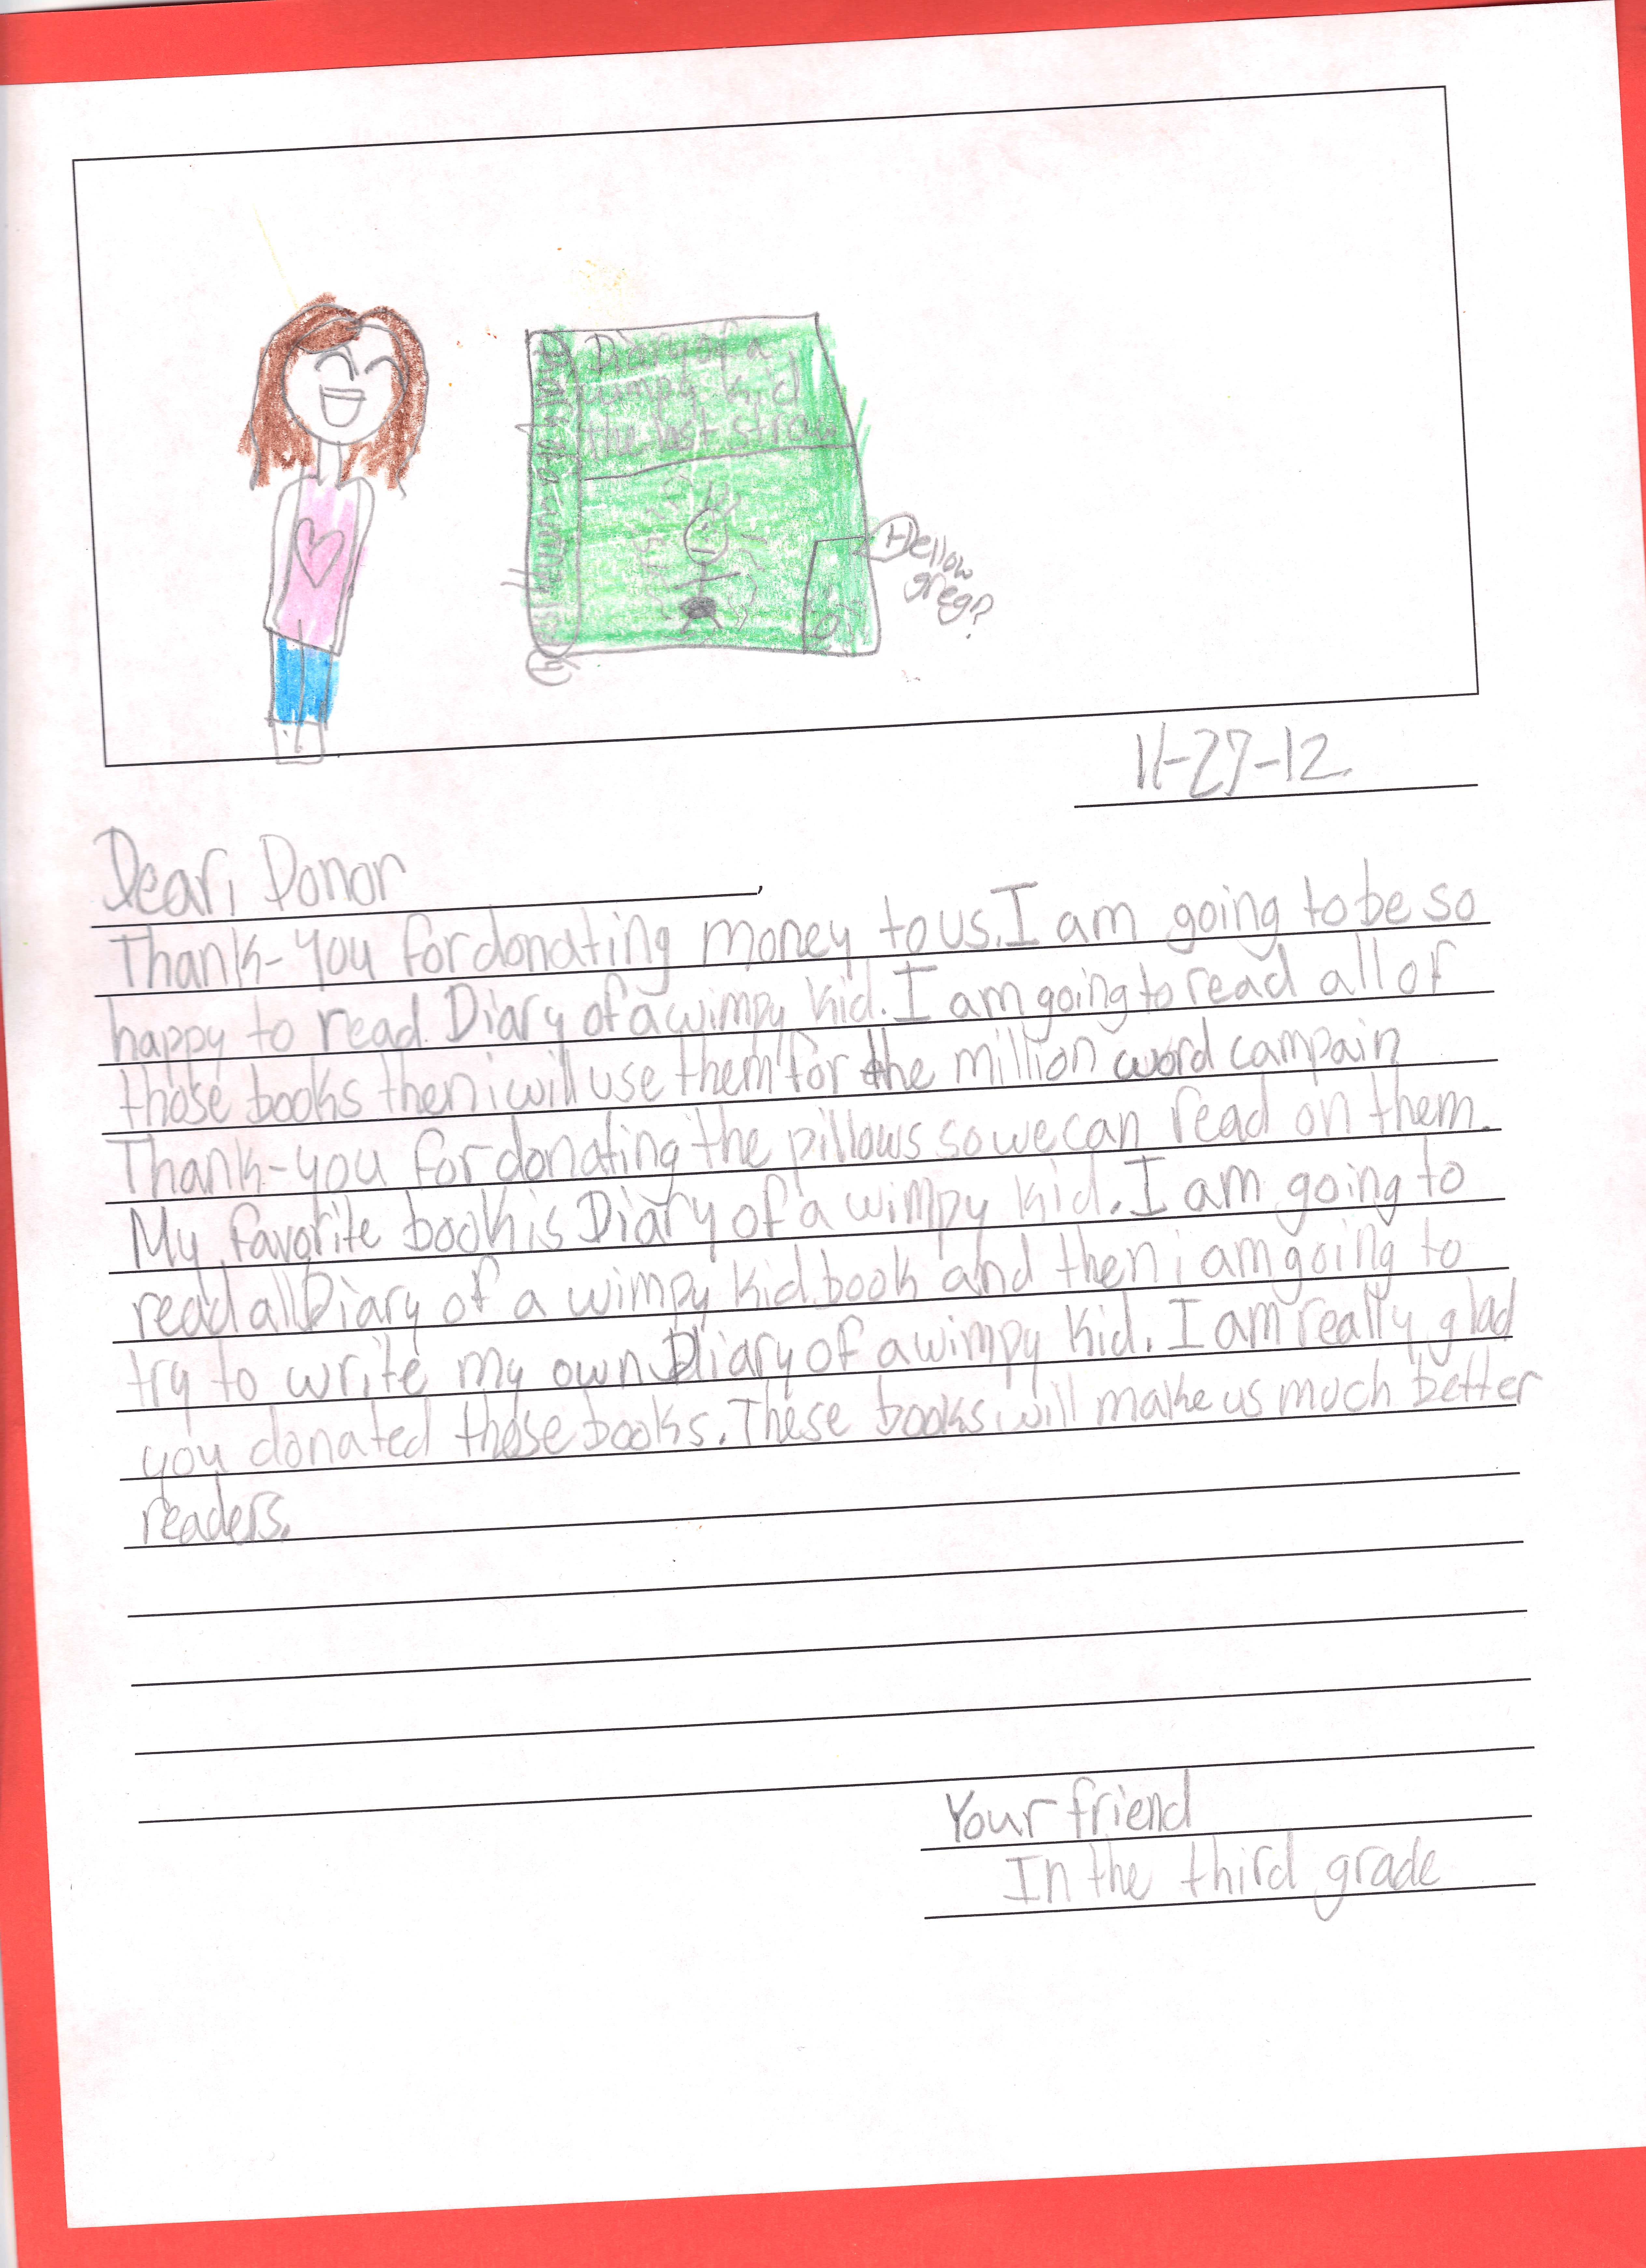 Diary of a
wimpy kid
the last straw
Hellow
greg?
11-27-12.
Dear, Donor
Thank-you for donating money to us. I am going to be so
happy to read Diary of a wimpy kid. I am going to read all of
those books then i will use them for the million word campain
Thank-you for donating the pillows so we can read on them.
My favorite book is Diary of a wimpy kid. I am going to
read all Diary of a wimpy kid book and then i am going to
try to write my own Diary of a wimpy kid. I am really glad
you donated those books. These books will make us much better
readers.
Your friend
In the third grade